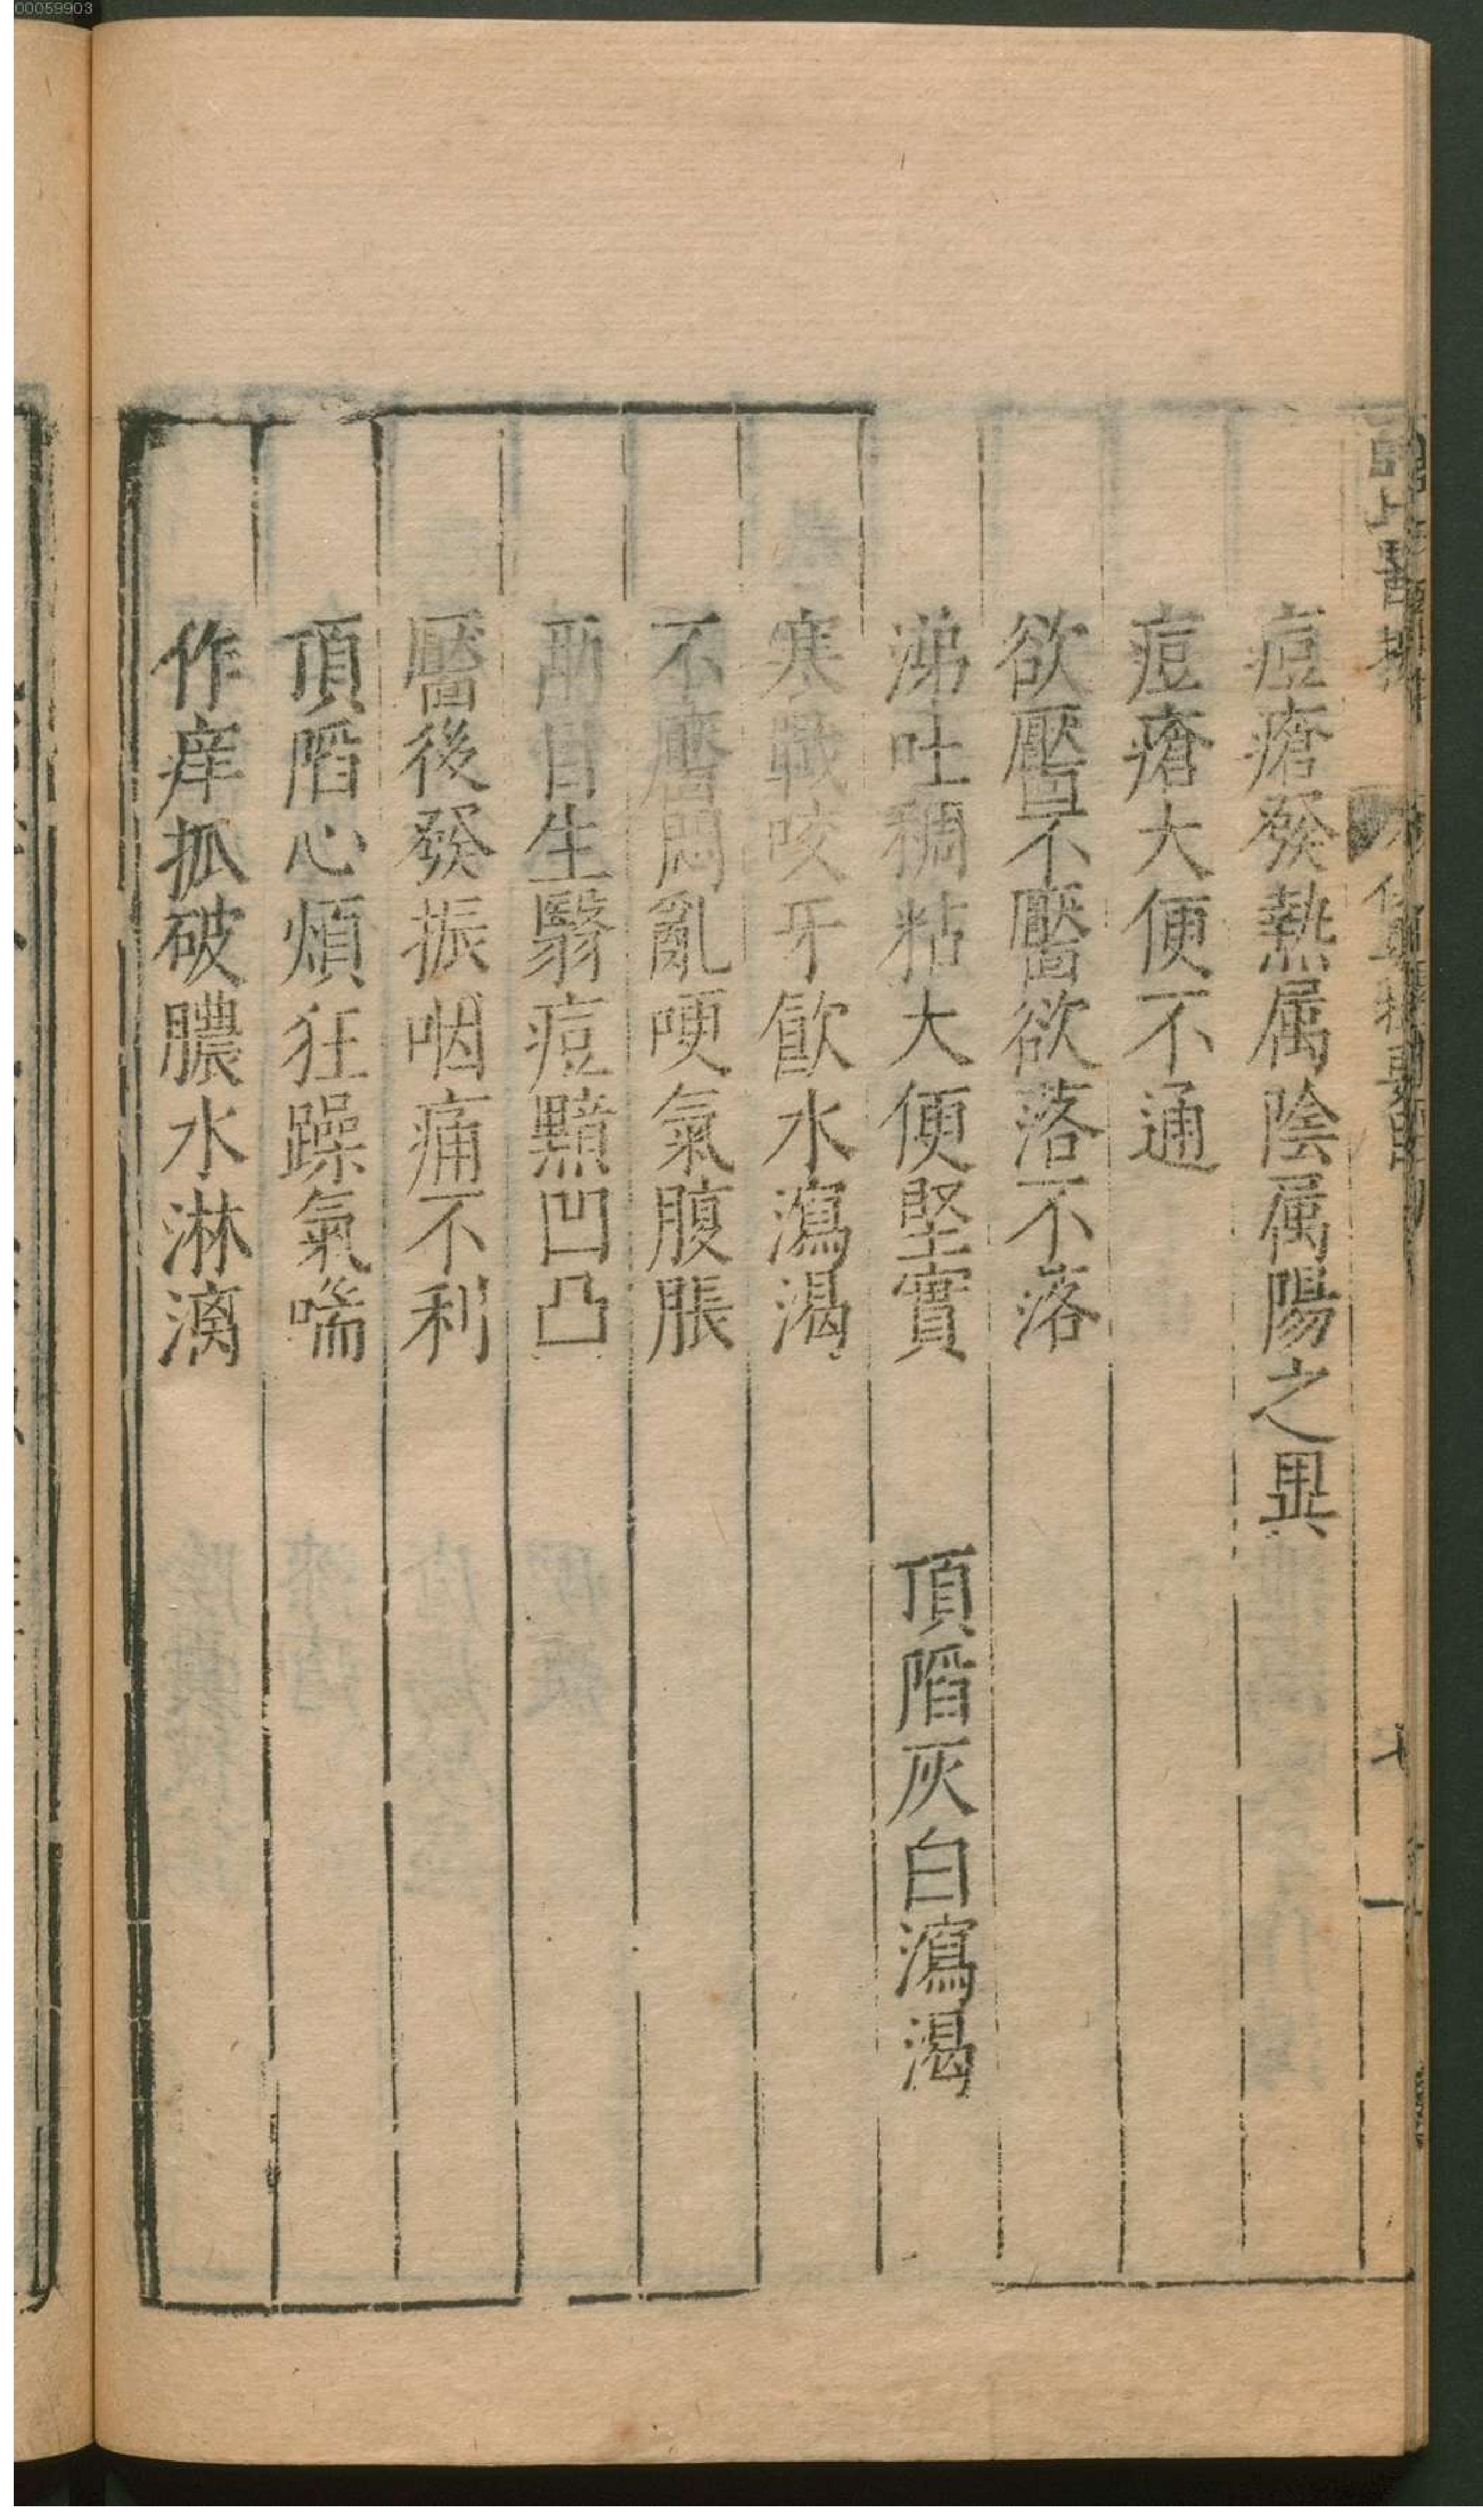 00059903
痘瘡發熱属陰属陽之異
痘瘡大便不通
欲靨不靨欲落不落
涕吐稠粘大便堅實　頂䧟灰白瀉渴
寒戰咬牙飮水瀉渴
不靨悶亂哽氣腹脹
兩目生翳痘黶凹凸
靨後發振咽痛不利
頂䧟心煩狂躁氣喘
作痒抓破膿水淋漓